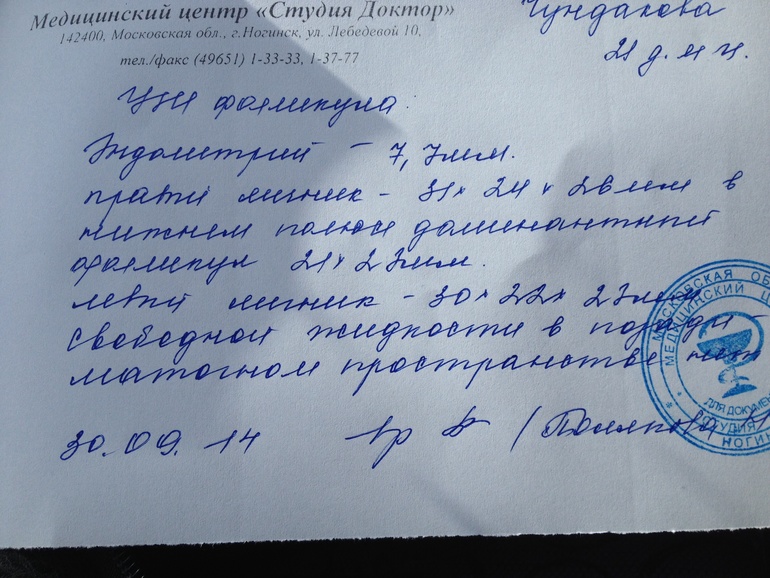 Медицинский центр «Студия Доктор»
142400, Московская обл., г.Ногинск, ул. Лебедевой 10,
тел./факс (49651) 1-33-33, 1-37-77
Чундакова
21 д. м. ц.
УЗИ фолликула:
Эндометрий – 7,7мм.
правый яичник – 31 × 24 × 26мм в
нижнем полюсе доминантный
фолликул 21 × 23мм.
левый яичник – 30 × 22 × 23мм
свободной жидкости в позади
маточном пространстве нет
30.09.14 вр (Полякова
МОСКОВСКАЯ ОБ
МЕДИЦИНСКИЙ Ц
ДЛЯ ДОКУМЕН
СТУДИЯ
НОГИН